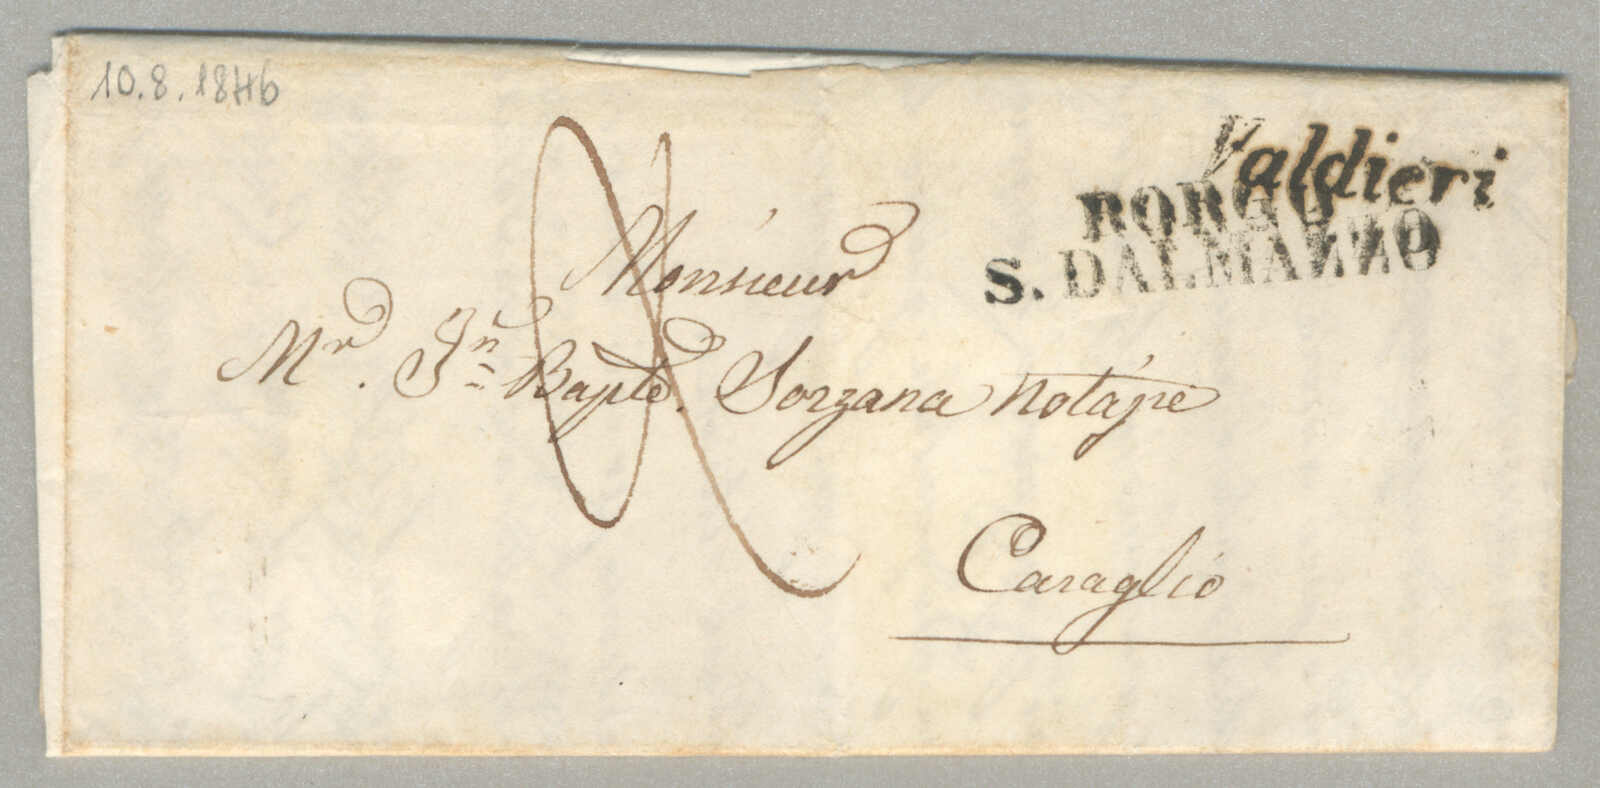 10.8.1846
Valdieri
BORGO
S. DALMAZZO
Monsieur
Mr. Jn Bapte. Sorzana Notaire
Caraglio